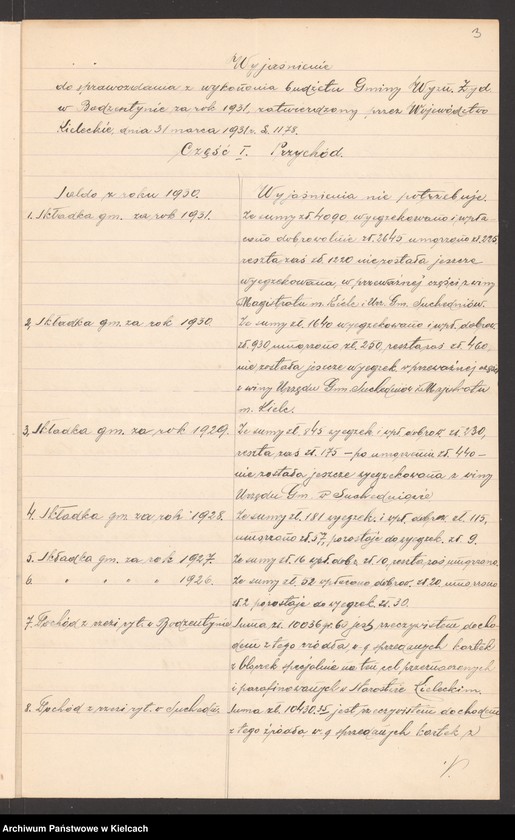 3
Wyjaśnienie
do sprawozdania z wykonania budżetu Gminy Wyzn. Żyd.
w Bodzentynie za rok 1931, zatwierdzony przez Województwo
Kieleckie, dnia 31 marca 1931 r. L. 1178.
Część I. Przychód.
Saldo z roku 1930.
Wyjaśnienia nie potrzebuje.
1. Składka gm. za rok 1931.
Ze sumy zł. 4090 wyegzekowano i wpła-
cono dobrowolnie zł. 2645 umorzono zł. 225
reszta zaś zł. 1220 nie została jeszcze
wyegzekowana, w przeważnej części z winy
Magistratu m. Kielc i Urz. Gm. Suchedniów.
2. Składka gm. za rok 1930
Ze sumy zł. 1640 wyegzekowano i wpł. dobrow.
zł. 930, umorzono zł. 250, reszta zaś zł. 460,
nie została jeszcze wyegzek. w przeważnej części
z winy Urzędu Gm. Suchedniów i Magistratu
m. Kielc.
3. Składka gm. za rok 1929.
Ze sumy zł. 845 wyegzek. i wpł. dobrow. zł. 230,
reszta zaś zł. 175 – po umorzeniu zł. 440 –
nie została jeszcze wyegzekowana z winy
Urzędu Gm. w Suchedniowie
4. Składka gm. za rok 1928.
Ze sumy zł. 181 wyegzek. i wpł. dobrow. zł. 115,
umorzono zł. 57, pozostaje do wyegzek. zł. 9.
5. Składka gm. za rok 1927.
Ze sumy zł. 16 wpł. dobr. zł. 10, reszta zaś umorzona.
6. " " " " 1926.
Ze sumy zł. 52 wpłacono dobrow. zł. 20, umorzono
zł. 2 pozostaje do wyegzek. zł. 30.
7. Dochód z rzezi ryt. w Bodzentynie
Suma zł. 10036 gr. 60 jest rzeczywistem docho-
dem z tego źródła, w-g sprzedanych kartek
z bloczek specjalnie na ten cel przeznaczonych
i parafinowanych w Starostwie Kieleckim.
8. Dochód z rzezi ryt. w Suchedn.
Suma zł. 10430 jest rzeczywistem dochodem
z tego źródła w-g sprzedanych kartek z
Archiwum Państwowe w Kielcach